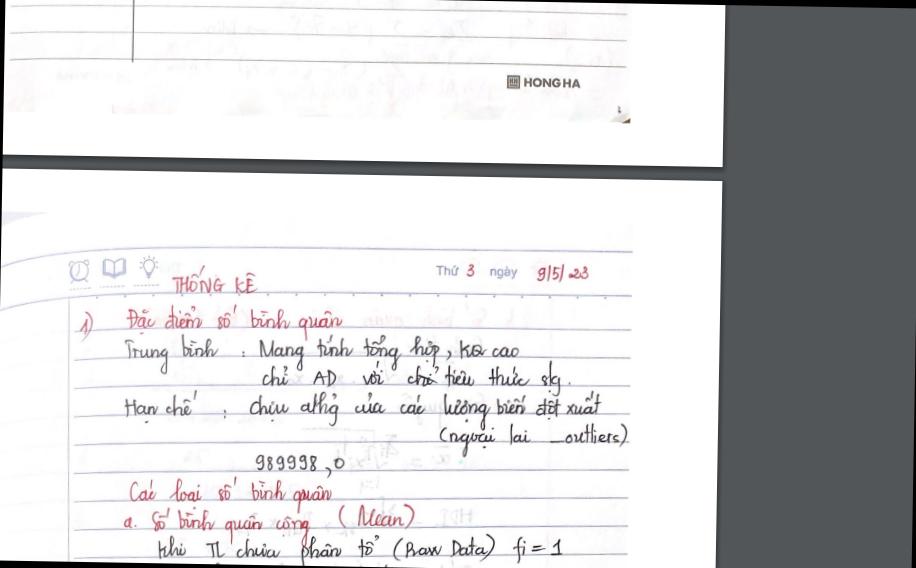 HONG HA
Thứ 3 ngày 9/5/23
THỐNG KÊ
1) Đặc điểm số bình quân
Trung bình : Mang tính tổng hợp, KQ cao
chỉ AD với chỉ tiêu thức slg.
Hạn chế : chịu ahg của các lượng biến đột xuất
(ngoại lai _outliers)
989998,0
Các loại số bình quân
a. Số bình quân cộng (Mean)
khi TL chưa phân tổ (Raw Data) fi = 1